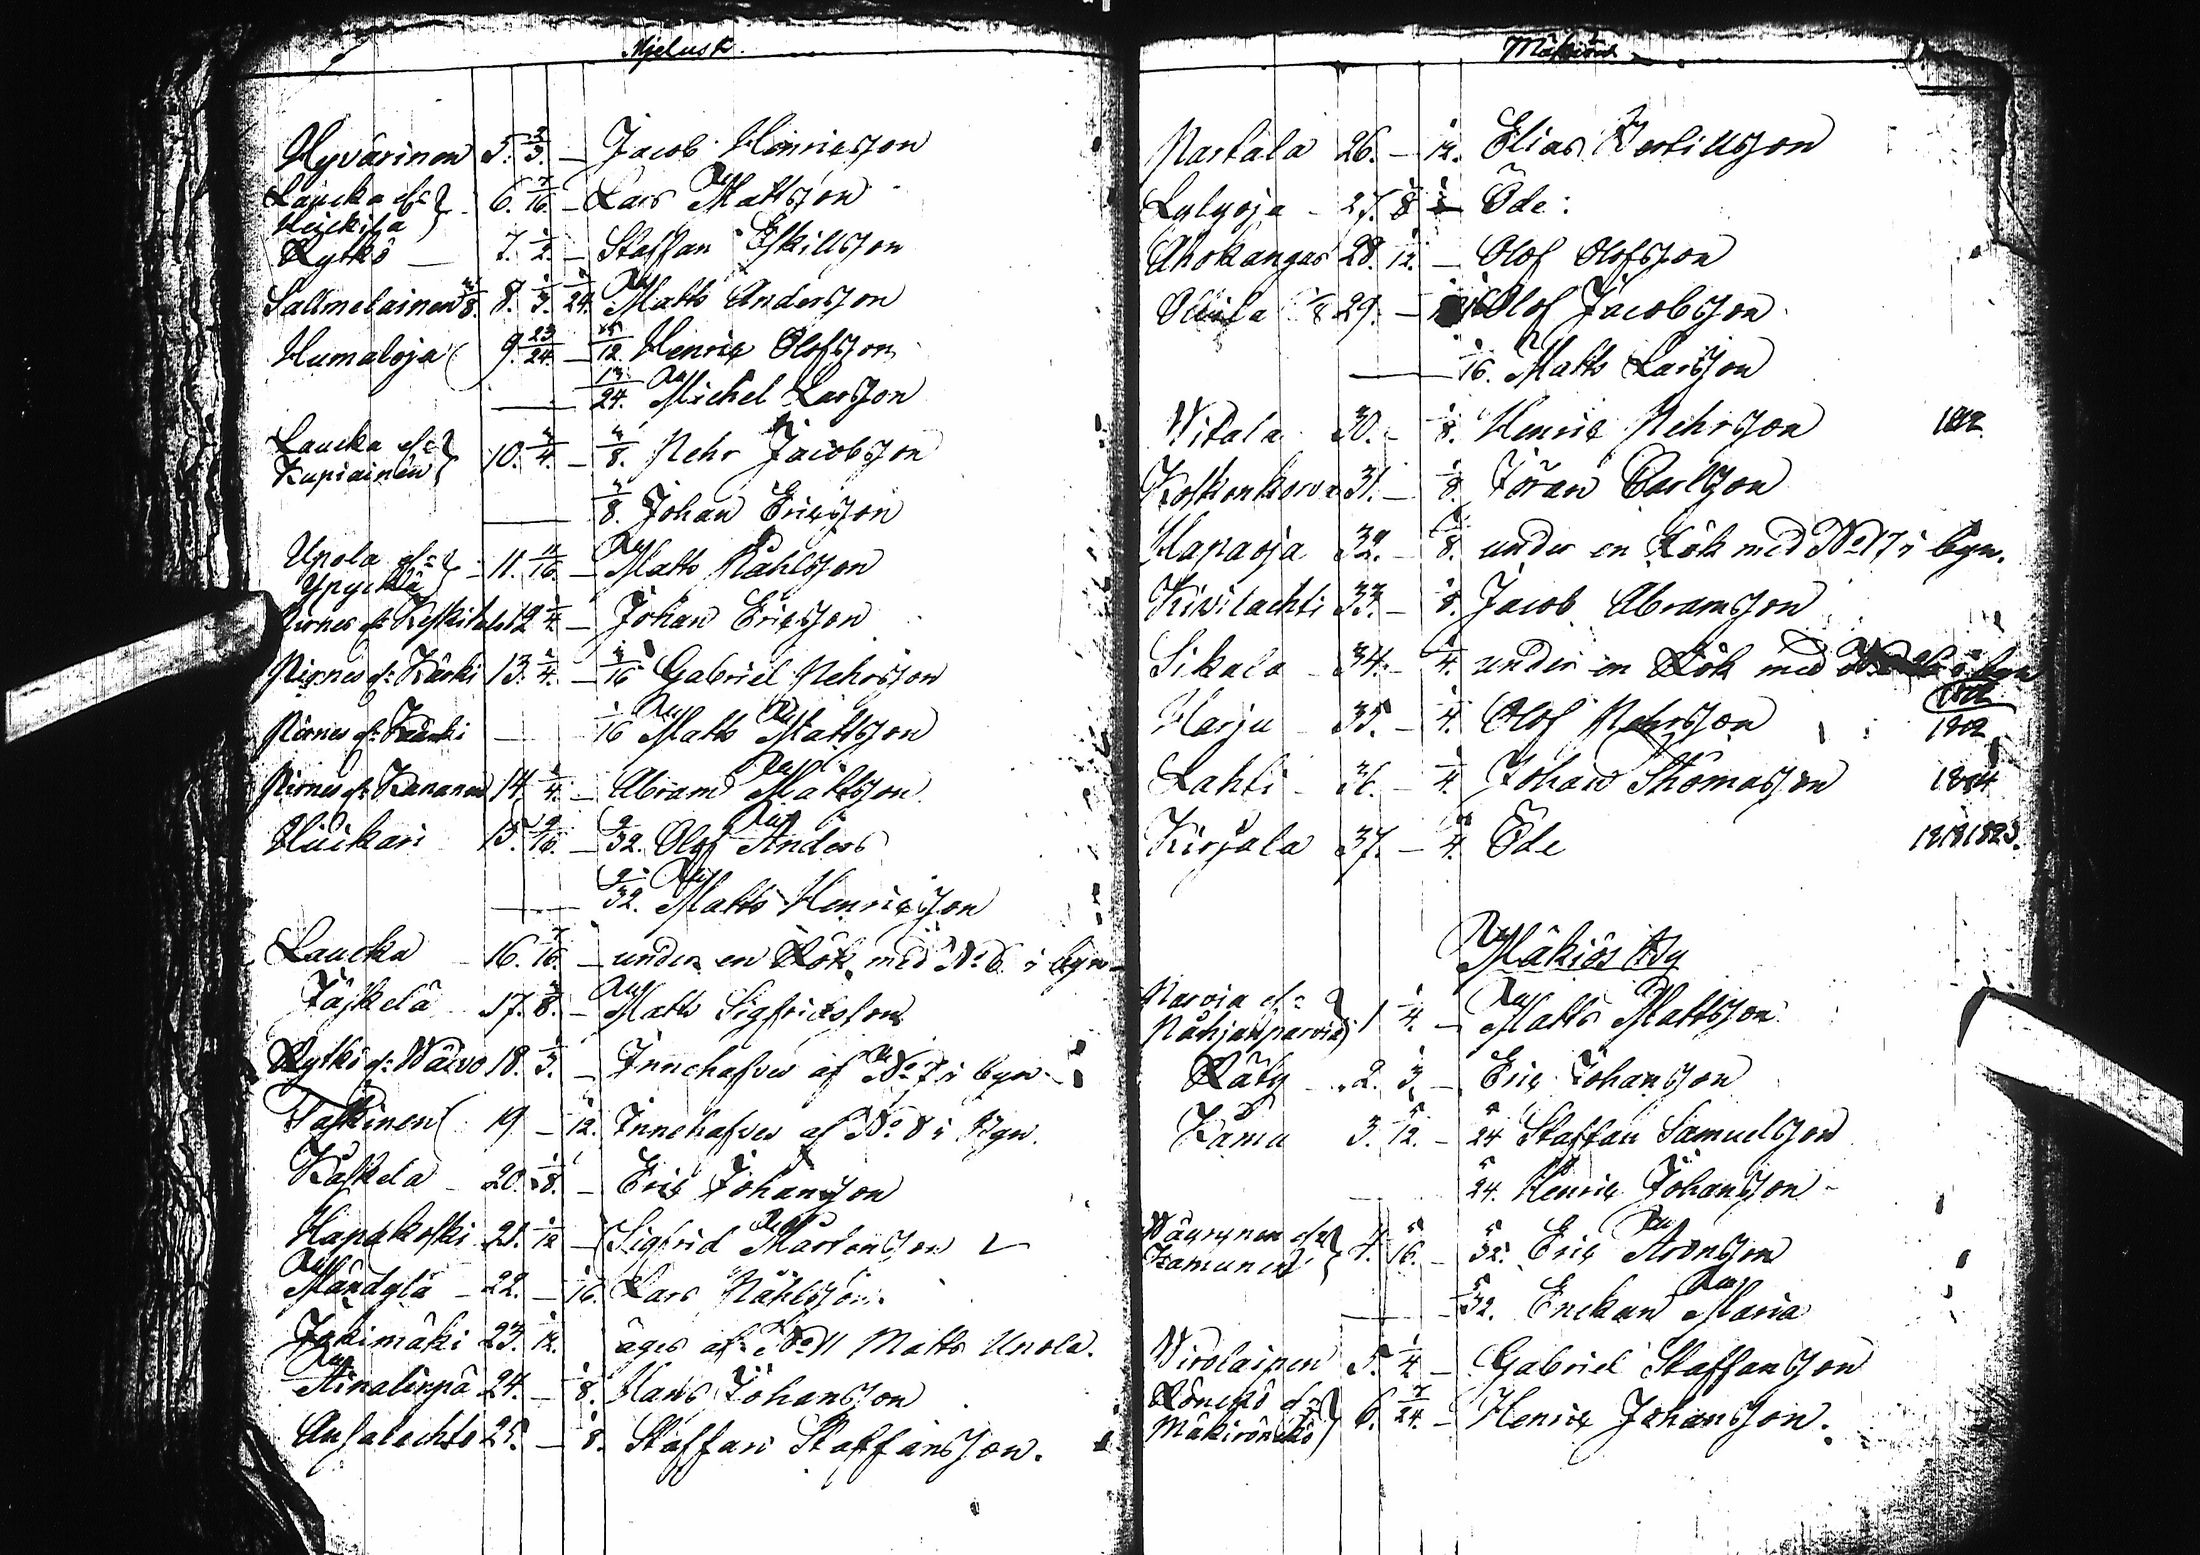 Hyvärinen 5. 2/3. — Jacob Hinricsson
Laucka el:
6. 7/16. — Lars Mattsson
Rytkö — 7. 1/2. — Staffan Eskillsson
Sallmelainen 8. 1/3. 1/24. Matts Andersson
Humaloja 9. 23/24. — 5/12. Henric Olofsson
— 13/24. Michel Larsson
Laucka el:
Kupiainen 10. 3/4. — 3/8. Pehr Jacobsson
— 3/8. Johan Ericsson
Upola el:
Ypyckä 11. /16. — Matts Påhlsson
Pirnes el: Keskitalo 12. /4. — Johan Ericsson
Pirnes el: Kärki 13. /4. — /16 Gabriel Pehrsson
Pirnes el: — 1/16 Matts Mattsson
Pirnes el: Kananen 14. /4. — Abram Mattsson
Huikari 15. 9/16. — 9/32. Olof Anders
— 9/32. Matts Henricsson
Laucka 16. 7/16. — under en Rök med No 6 i byn
Jäskelä 17. /8. — Matts Sigfridsson
Rytkö el: Wärvo 18. 1/3. — Innehafves af No 7 i byn
Taskinen 19 — 1/12. Innehafves af No 8 i byn.
Kaskela 20. 1/8. — Eric Johansson
Hapakoski 21. 1/12 — Sigfrid Mårtensson
Mändylä — 22. — 1/16. Lars Påhlsson.
Jokimäki 23. 1/12. äges af No 11 Matts Upola.
Ainalinpä 24. — 1/8. Hans Johansson
Ansalachto 25. — 1/8. Staffan Staffansson.
Partala 26. — 1/12. Elias Bertillsson
Lylyoja — 27. 1/8 Öde:
Ahokangas 28. 1/12. — Olof Olofsson
29. — Olof Jacobsson
— 1/16. Matts Larsson
Witala 30. — 1/8. Henric Pehrsson 1812.
Koskenkorva 31. — 1/8. Jöran Carlsson
Hapaoja 32. — 1/8. under en Rök med No 17 i byn.
Kivilachti 33. — 1/8. Jacob Abramsson
Sikala — 34. — 1/4. under en Rök med
Harju — 35. — 1/4. Olof Pehrsson 1802
Lahti — 36. — 1/4. Johan Thomasson 1804
Kirjala 37. — 1/4. Öde 1818 1823.
Mäkiös By
Parvia el:
1 1/4. — Matts Mattsson
Räty — 2. 1/3. — Eric Johansson
Kämä 3. 5/12. — 5/24 Staffan Samuelsson
— 5/24. Henric Johansson —
Wäyrynen el:
Kamunen 4. 5/16. — 5/32. Eric Aronsson
— 5/32. Enckan Maria
Wirolainen 5. 1/4 — Gabriel Staffansson
Röneckö el:
Mäkiröneckö 6. 7/24. — Henric Johansson.